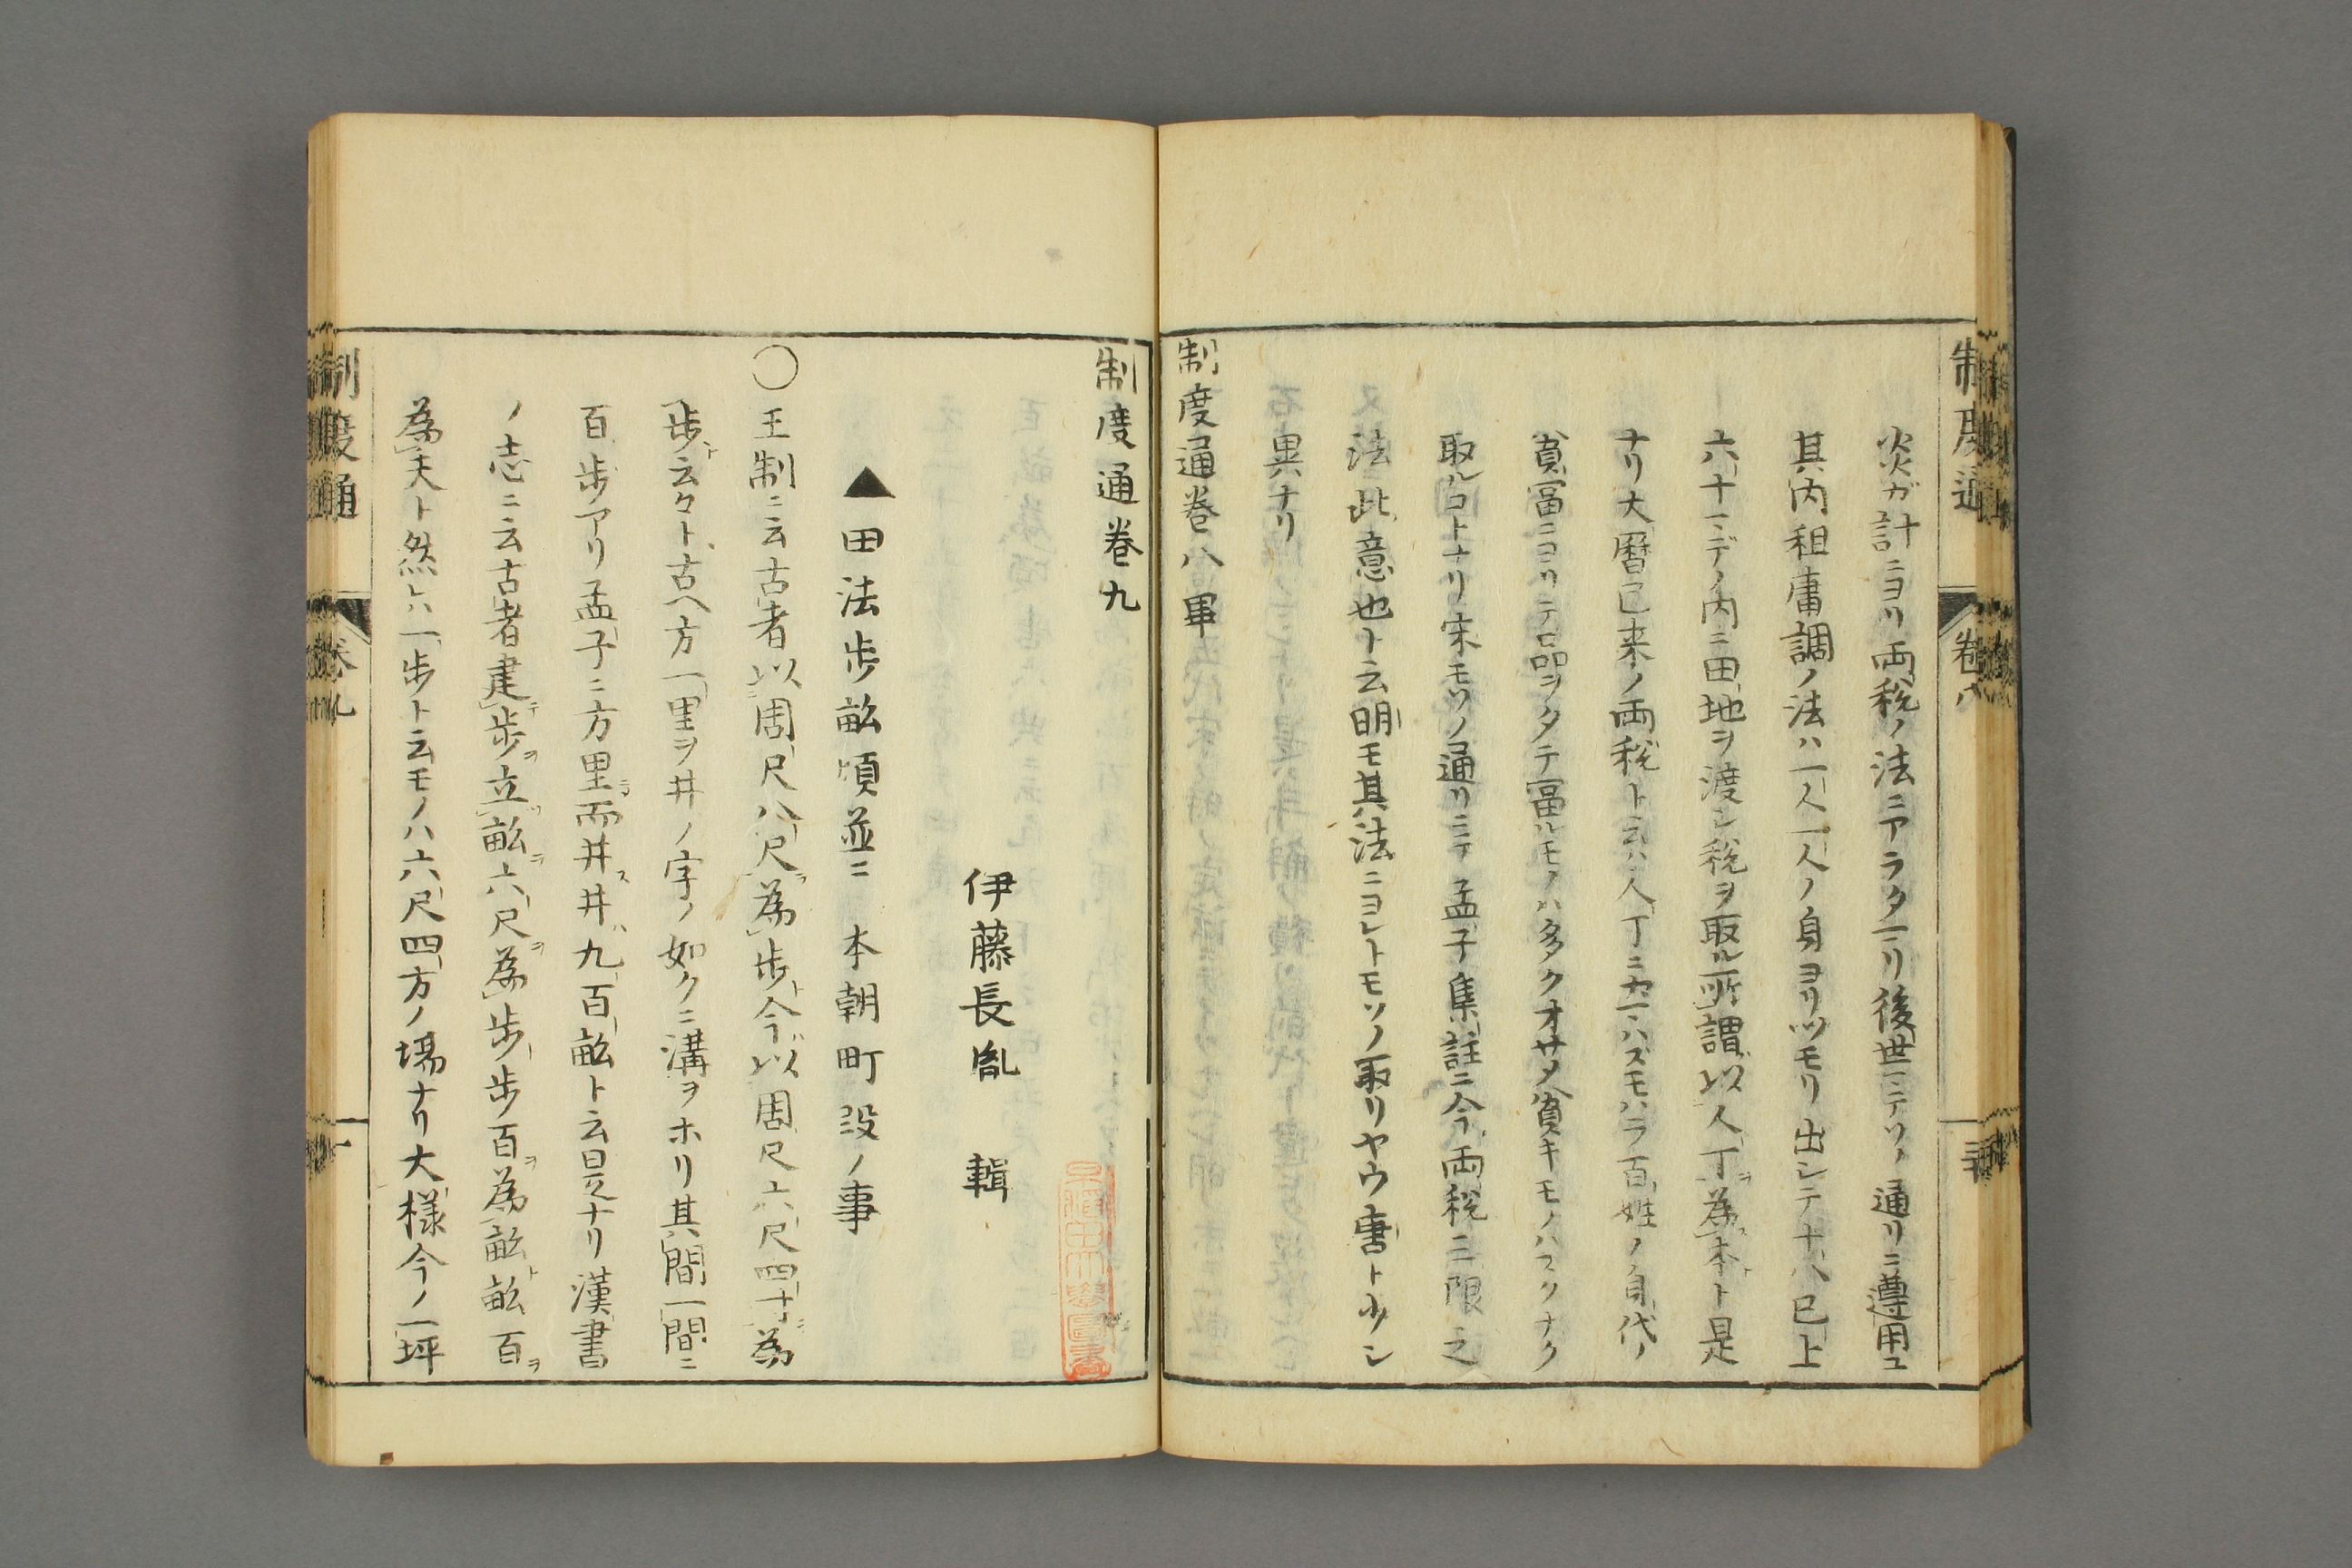 炎ガ計ニヨリ両税ノ法ニアラタマリ後世ニテソノ通リニ遵用ユ
其内租庸調ノ法ハ一人一人ノ身ヨリツモリ出シテ十八已上
六十マデノ内ニ田地ヲ渡シ税ヲ取ル所謂以人丁為本ト是
ナリ大暦已来ノ両税ト云ハ人丁ニカマハズモハラ百姓ノ身代ノ
貧冨ニヨリテ品ヲタテ冨ルモノハ多クオサメ貧キモノハスクナク
取ルコトナリ宋モソノ通リニテ孟子集註ニ今両税三限之
法此意也ト云明モ其法ニヨレトモソノ取リヤウ唐ト少シ
異ナリ
制度通巻八畢
制度通巻九
伊藤長胤 輯
▲田法歩畝頃並ニ 本朝町段ノ事
〇王制ニ云古者以周尺八尺為歩今以周尺六尺四寸為
歩云々ト古ヘ方一里ヲ井ノ字ノ如クニ溝ヲホリ其間一間ニ
百歩アリ孟子ニ方里而井井九百畝ト云是ナリ漢書
ノ志ニ云古者建歩立畝六尺為歩歩百為畝畝百
為夫ト然レハ一歩ト云モノハ六尺四方ノ場ナリ大様今ノ一坪
制度通
巻八
制度通
巻九